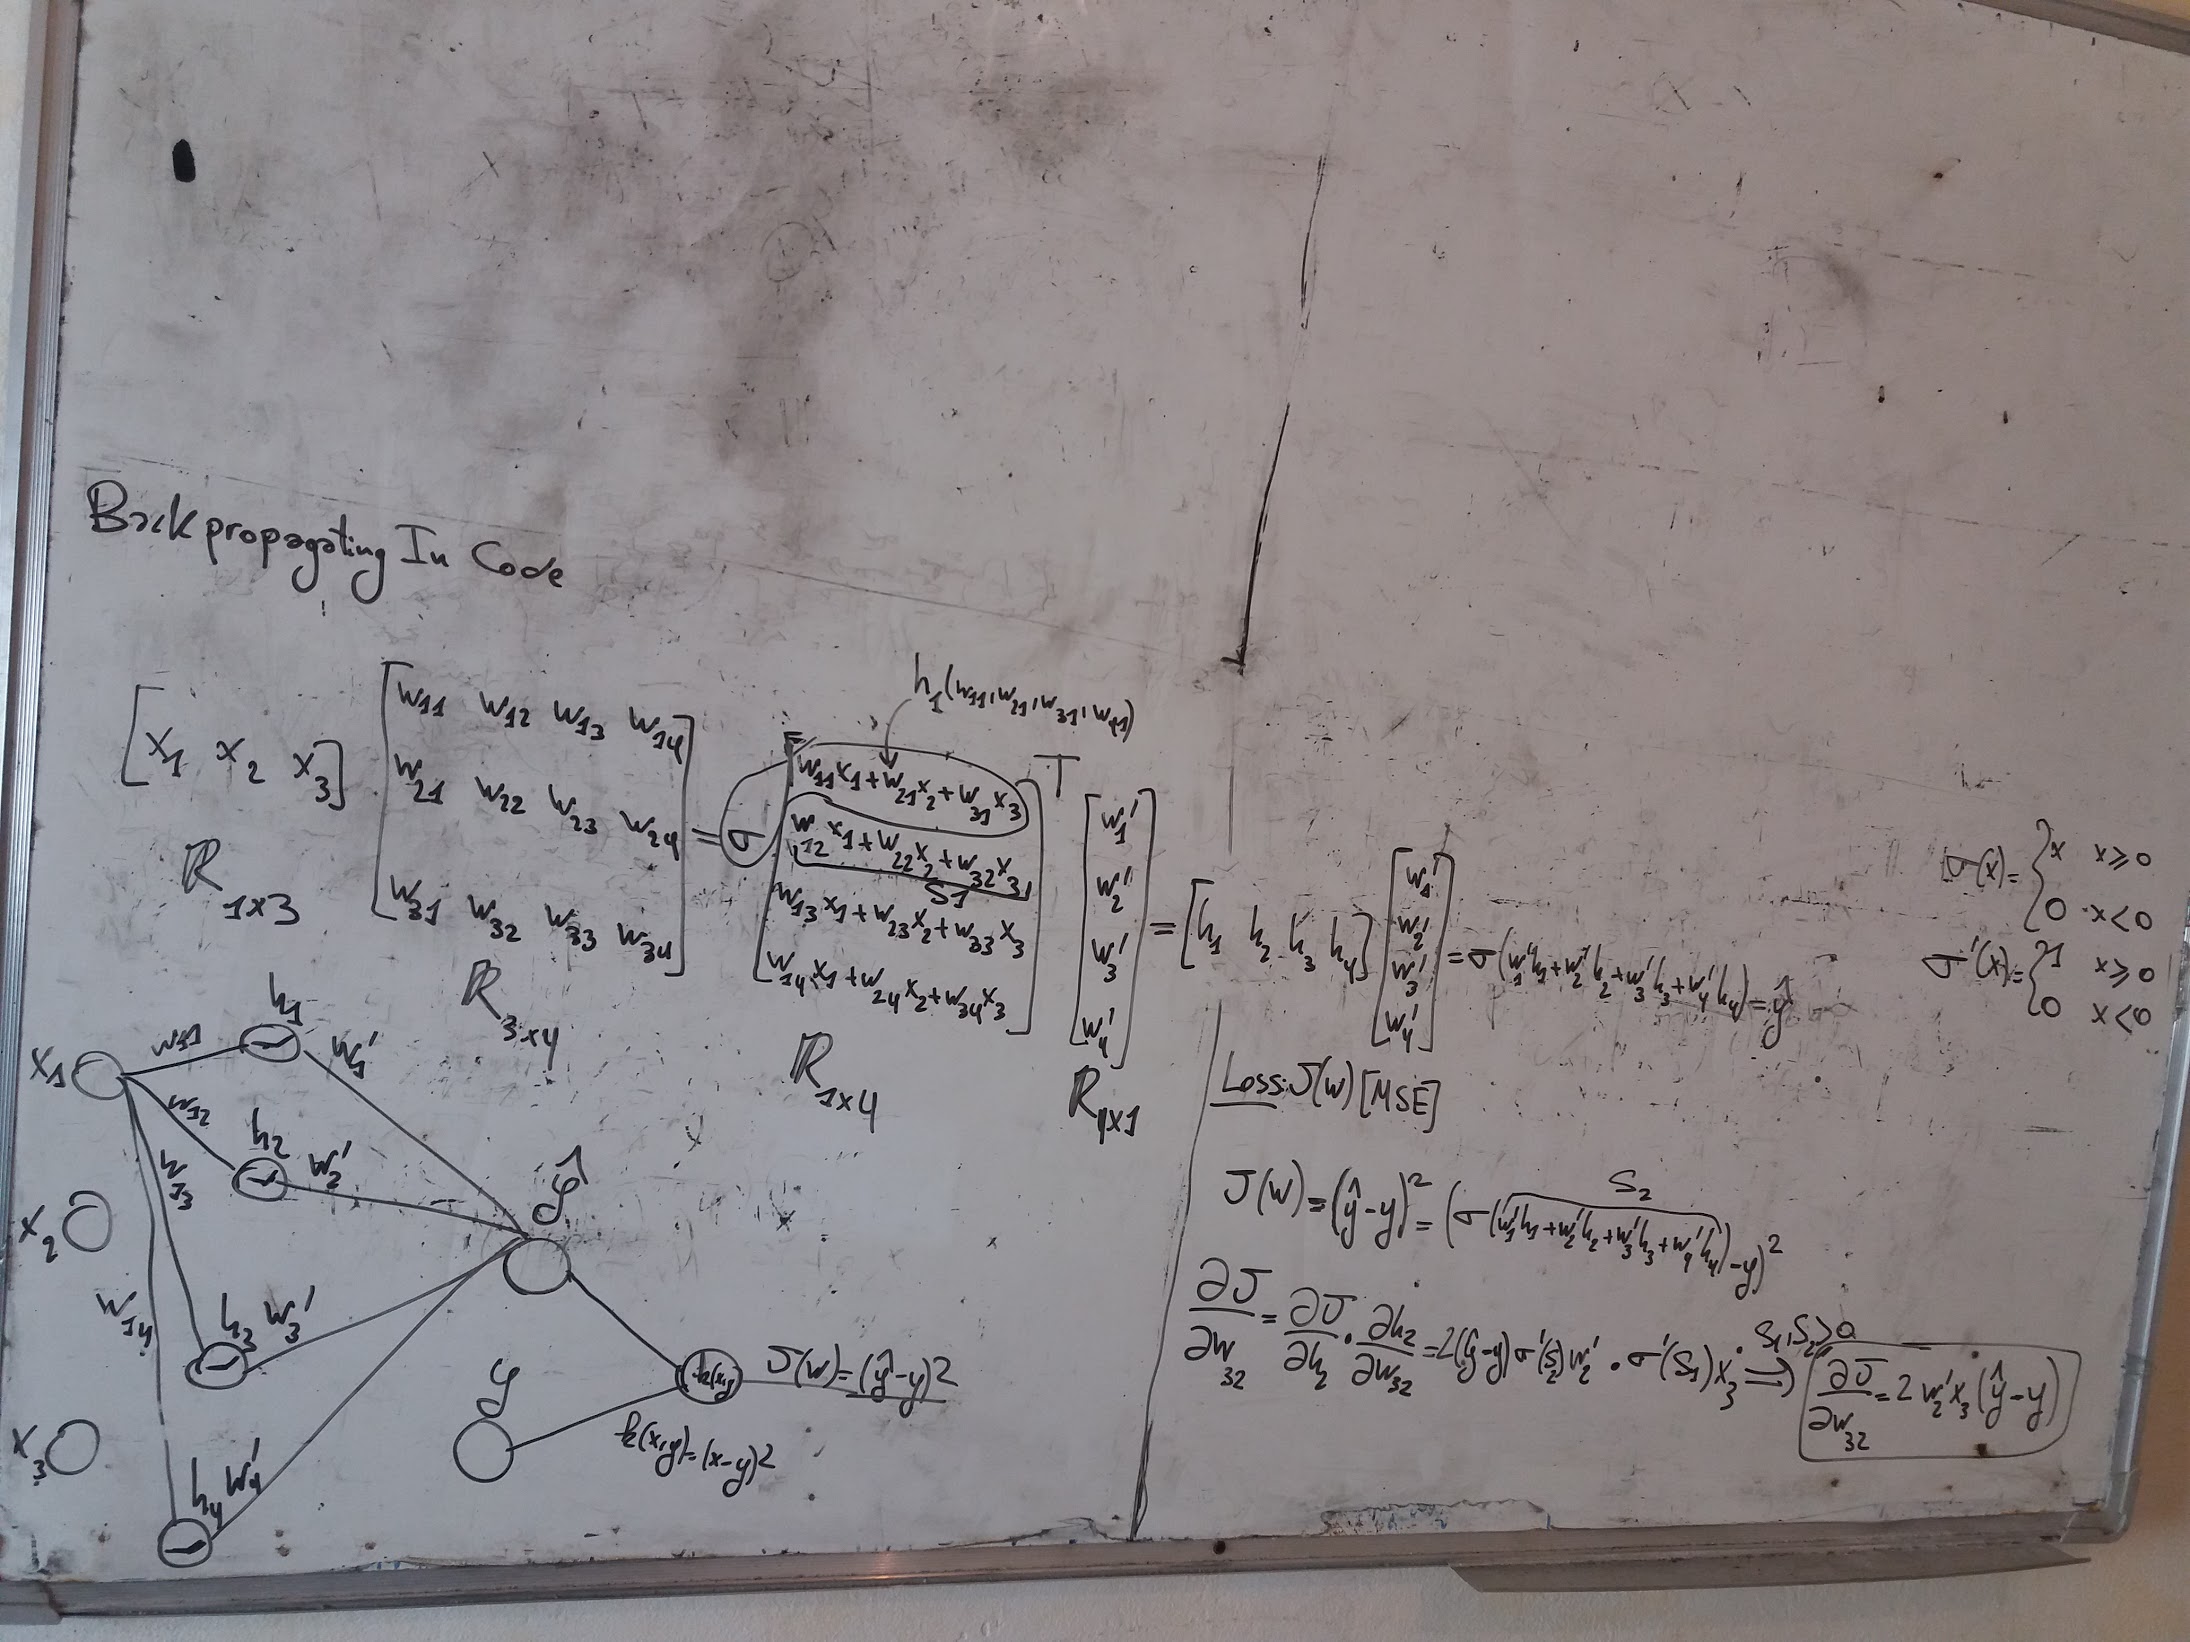 Backpropagating In Code
[x₁ x₂ x₃] [w₁₁ w₁₂ w₁₃ w₁₄
w₂₁ w₂₂ w₂₃ w₂₄
w₃₁ w₃₂ w₃₃ w₃₄]
= σ
h₁(w₁₁, w₂₁, w₃₁, w₄₁)
[w₁₁x₁+w₂₁x₂+w₃₁x₃
w₁₂x₁+w₂₂x₂+w₃₂x₃
S₁
w₁₃x₁+w₂₃x₂+w₃₃x₃
w₁₄x₁+w₂₄x₂+w₃₄x₃]ᵀ
[w₁'
w₂'
w₃'
w₄']
= [h₁ h₂ h₃ h₄]
[w₁'
w₂'
w₃'
w₄']
= σ(w₁'h₁+w₂'h₂+w₃'h₃+w₄'h₄) = ŷ
ℝ₁ₓ₃
ℝ₃ₓ₄
ℝ₁ₓ₄
ℝ₄ₓ₁
σ(x)= { x x⩾0
0 x<0
σ'(x)= { 1 x⩾0
0 x<0
x₁ w₁₁ h₁ w₁'
w₁₂ h₂ w₂'
w₁₃
x₂
w₁₄ h₃ w₃'
x₃
h₄ w₄'
ŷ
y
k(x,y
J(w)=(ŷ-y)2
k(x,y)=(x-y)2
Loss: J(w) [MSE]
J(w)=(ŷ-y)²=(σ(w₁'h₁+w₂'h₂+w₃'h₃+w₄'h₄)-y)²
S₂
∂J/∂w₃₂ = ∂J/∂h₂ · ∂h₂/∂w₃₂ = 2(ŷ-y)σ'(S₂)w₂' · σ'(S₁)x₃ ⟹
S₁,S₂>0
∂J/∂w₃₂ = 2w₂'x₃(ŷ-y)